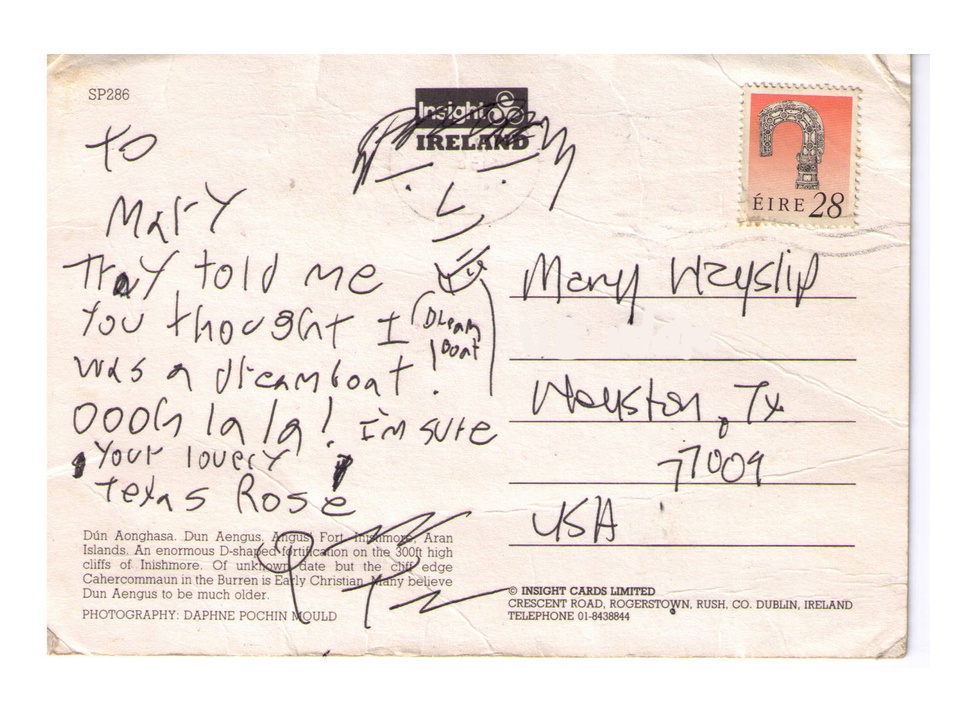 SP286
Insight
IRELAND
ÉIRE 28
to
Mary
Troy told me
you thought I
was a dreamboat!
OOOh la la! I'm sure
your lovely
Texas Rose
Dream
Boat
Mary Hayslip
Houston, Tx
77009
USA
Dún Aonghasa. Dun Aengus. Angus Fort, Inishmore, Aran
Islands. An enormous D-shaped fortification on the 300ft high
cliffs of Inishmore. Of unknown date but the cliff edge
Cahercommaun in the Burren is Early Christian. Many believe
Dun Aengus to be much older.
PHOTOGRAPHY: DAPHNE POCHIN MOULD
© INSIGHT CARDS LIMITED
CRESCENT ROAD, ROGERSTOWN, RUSH, CO. DUBLIN, IRELAND
TELEPHONE 01-8438844